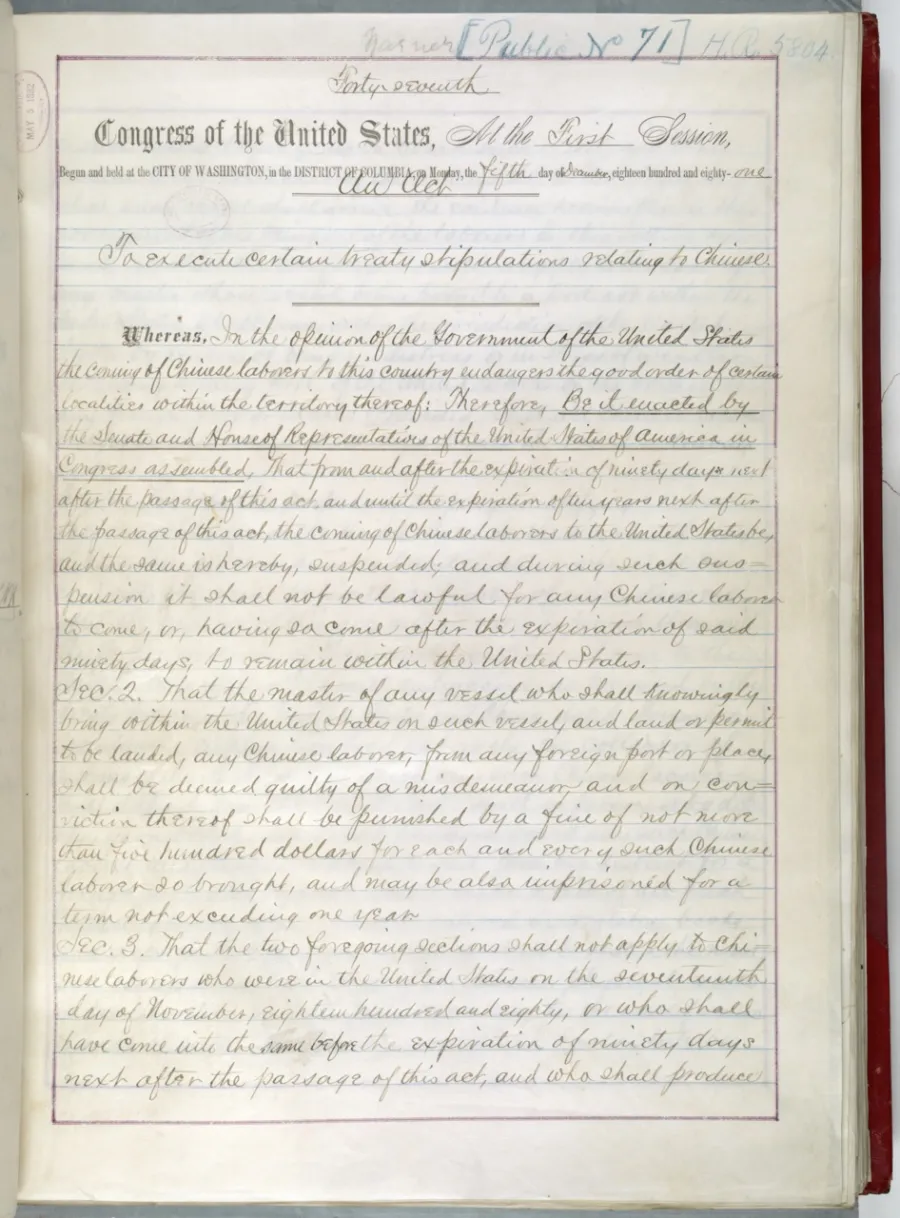 [Public No 71] H.R. 5804.
Forty-seventh
Congress of the United States, At the First Session,
Begun and held at the CITY OF WASHINGTON, in the DISTRICT OF COLUMBIA, on Monday, the fifth day of December, eighteen hundred and eighty-one
An Act
To execute certain treaty stipulations relating to Chinese.
Whereas, In the opinion of the Government of the United States
the coming of Chinese laborers to this country endangers the good order of certain
localities within the territory thereof: Therefore, Be it enacted by
the Senate and House of Representatives of the United States of America in
Congress assembled, That from and after the expiration of ninety days next
after the passage of this act, and until the expiration of ten years next after
the passage of this act, the coming of Chinese laborers to the United States be,
and the same is hereby, suspended; and during such sus=
pension it shall not be lawful for any Chinese laborer
to come, or, having so come after the expiration of said
ninety days, to remain within the United States.
SEC. 2. That the master of any vessel who shall knowingly
bring within the United States on such vessel, and land or permit
to be landed, any Chinese laborer, from any foreign port or place,
shall be deemed guilty of a misdemeanor, and on con=
viction thereof shall be punished by a fine of not more
than five hundred dollars for each and every such Chinese
laborer so brought, and may be also imprisoned for a
term not exceeding one year.
SEC. 3. That the two foregoing sections shall not apply to Chi=
nese laborers who were in the United States on the seventeenth
day of November, eighteen hundred and eighty, or who shall
have come into the same before the expiration of ninety days
next after the passage of this act, and who shall produce
MAY 5 1882